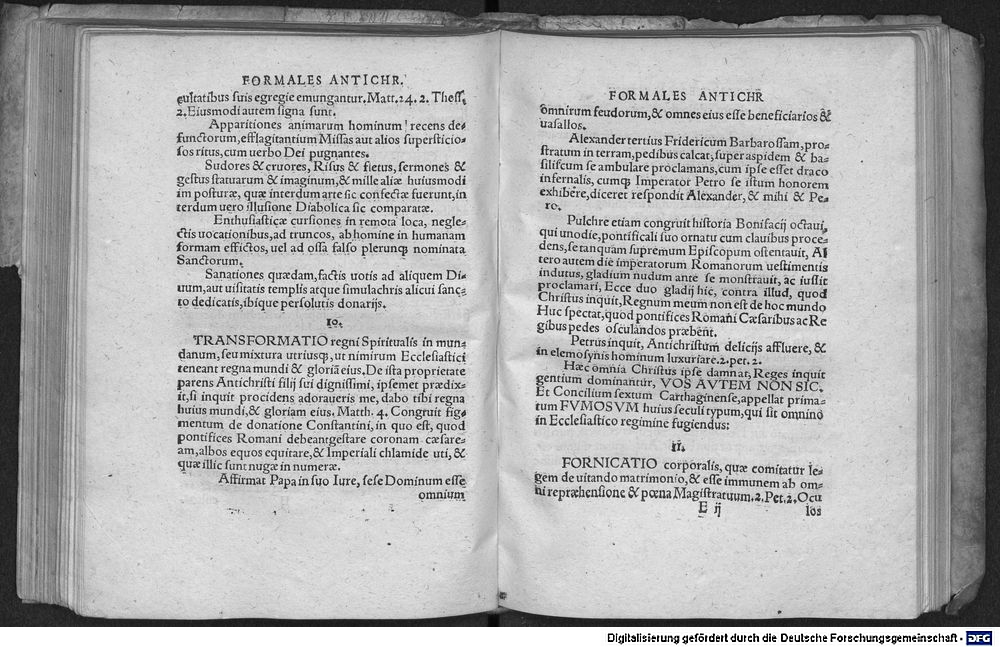 FORMALES ANTICHR.
cultatibus suis egregie emungantur. Matt. 24. 2. Thess.
2. Eiusmodi autem signa sunt.
Apparitiones animarum hominum recens de-
functorum, efflagitantium Missas aut alios superstitio-
sos ritus, cum uerbo Dei pugnantes.
Sudores & cruores, Risus & fletus, sermones &
gestus statuarum & imaginum, & mille aliæ huiusmodi
im posturæ, quæ interdum arte sic confectæ fuerunt, in
terdum uero illusione Diabolica sic comparatæ.
Enthusiasticæ cursiones in remota loca, negle-
ctis uocationibus, ad truncos, ab homine in humanam
formam effictos, uel ad ossa falso plerunq; nominata
Sanctorum.
Sanationes quædam, factis uotis ad aliquem Di-
uum, aut uisitatis templis atque simulachris alicui sanc-
to dedicatis, ibique persolutis donarijs.
10.
TRANSFORMATIO regni Spiritualis in mun-
danum, seu mixtura utriusq;, ut nimirum Ecclesiastici
teneant regna mundi & gloriã eius. De ista proprietate
parens Antichristi filij sui dignissimi, ipsemet prædix-
it, si inquit procidens adoraueris me, dabo tibi regna
huius mundi, & gloriam eius. Matth. 4. Congruit fig-
mentum de donatione Constantini, in quo est, quod
pontifices Romani debeant gestare coronam cæsare-
am, albos equos equitare, & Imperiali chlamide uti, &
quæ illic sunt nugæ in numeræ.
Affirmat Papa in suo Iure, sese Dominum esse
omnium
FORMALES ANTICHR
omnirum feudorum, & omnes eius esse beneficiarios &
uasallos.
Alexander tertius Fridericum Barbarossam, pro-
stratum in terram, pedibus calcat, super aspidem & ba-
siliscum se ambulare proclamans, cum ipse esset draco
infernalis, cumq; Imperator Petro se istum honorem
exhibere, diceret respondit Alexander, & mihi & Pe-
ro.
Pulchre etiam congruit historia Bonifacij octaui,
qui uno die, pontificali suo ornatu cum clauibus proce-
dens, se tanquam supremum Episcopum ostentauit, Al
tero autem die imperatorum Romanorum uestimentis
indutus, gladium nudum ante se monstrauit, ac iussit
proclamari, Ecce duo gladij hic, contra illud, quod
Christus inquit, Regnum meum non est de hoc mundo
Huc spectat, quod pontifices Romani Cæsaribus ac Re
gibus pedes osculandos præbent.
Petrus inquit, Antichristum delicijs affluere, &
in elemosynis hominum luxuriare. 2. pet. 2.
Hæc omnia Christus ipse damnat, Reges inquit
gentium dominantur, VOS AVTEM NON SIC.
Et Concilium sextum Carthaginense, appellat prima-
tum FVMOSVM huius seculi typum, qui sit omnino
in Ecclesiastico regimine fugiendus:
11.
FORNICATIO corporalis, quæ comitatur le-
gem de uitando matrimonio, & esse immunem ab om-
ni repræhensione & pœna Magistratuum. 2. Pet. 2. Ocu
E ij los
Digitalisierung gefördert durch die Deutsche Forschungsgemeinschaft - DFG